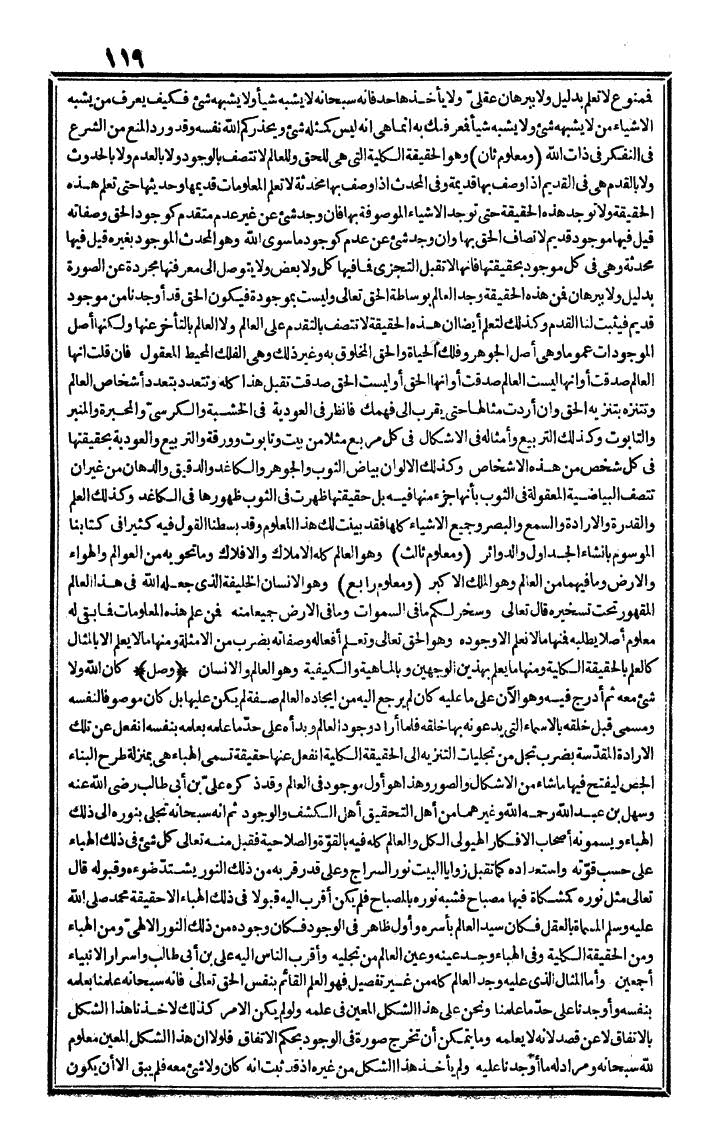 ١١٩
فممنوع لا تعلم بدليل ولا ببرهان عقلىّ ولا يأخذها حد فانه سبحانه لا يشبه شيأ ولا يشبهه شئ فكيف يعرف من يشبه
الاشياء من لا يشبهه شئ ولا يشبه شيأ فمعرفتك به انما هى انه ليس كمثله شئ ويحذركم الله نفسه وقد ورد المنع من الشرع
فى التفكر فى ذات الله (ومعلوم ثان) وهو الحقيقة الكلية التى هى للحق وللعالم لا تتصف بالوجود ولا بالعدم ولا بالحدوث
ولا بالقدم هى فى القديم اذا وصف بها قديمة وفى المحدث اذا وصف بها محدثة لا تعلم المعلومات قديمها وحديثها حتى تعلم هذه
الحقيقة ولا توجد هذه الحقيقة حتى توجد الاشياء الموصوفة بها فان وجد شئ عن غير عدم متقدم كوجود الحق وصفاته
قيل فيها موجود قديم لاتصاف الحق بها وان وجد شئ عن عدم كوجود ما سوى الله وهو المحدث الموجود بغيره قيل فيها
محدثة وهى فى كل موجود بحقيقتها فانها لا تقبل التجزى فما فيها كل ولا بعض ولا يتوصل الى معرفتها مجردة عن الصورة
بدليل ولا ببرهان فمن هذه الحقيقة وجد العالم بوساطة الحق تعالى وليست بموجودة فيكون الحق قد أوجدنا من موجود
قديم فيثبت لنا القدم وكذلك لتعلم أيضا ان هذه الحقيقة لا تتصف بالتقدم على العالم ولا العالم بالتأخر عنها ولكنها أصل
الموجودات عموما وهى أصل الجوهر وفلك الحياة والحق المخلوق به وغير ذلك وهى الفلك المحيط المعقول فان قلت انها
العالم صدقت أو انها ليست العالم صدقت أو انها الحق أو ليست الحق صدقت تقبل هذا كله وتتعدد بتعدد أشخاص العالم
وتتنزه بتنزيه الحق وان أردت مثالها حتى يقرب الى فهمك فانظر فى العودية فى الخشبة والكرسىّ والمحبرة والمنبر
والتابوت وكذلك التربيع وأمثاله فى الاشكال فى كل مربع مثلا من بيت وتابوت وورقة والتربيع والعودية بحقيقتها
فى كل شخص من هذه الاشخاص وكذلك الالوان بياض الثوب والجوهر والكاغد والدقيق والدهان من غير ان
تتصف البياضية المعقولة فى الثوب بأنها جزء منها فيه بل حقيقتها ظهرت فى الثوب ظهورها فى الكاغد وكذلك العلم
والقدرة والارادة والسمع والبصر وجميع الاشياء كلها فقد بينت لك هذا المعلوم وقد بسطنا القول فيه كثيرا فى كتابنا
الموسوم بانشاء الجداول والدوائر (ومعلوم ثالث) وهو العالم كله الاملاك والافلاك وما تحويه من العوالم والهواء
والارض وما فيهما من العالم وهو الملك الاكبر (ومعلوم رابع) وهو الانسان الخليفة الذى جعله الله فى هذا العالم
المقهور تحت تسخيره قال تعالى وسخر لكم ما فى السموات وما فى الارض جميعا منه فمن علم هذه المعلومات فما بقى له
معلوم أصلا يطلبه فمنها ما لا نعلم الا وجوده وهو الحق تعالى وتعلم أفعاله وصفاته بضرب من الامثلة ومنها ما لا يعلم الا بالمثال
كالعلم بالحقيقة الكلية ومنها ما يعلم بهذين الوجهين وبالماهية والكيفية وهو العالم والانسان ﴿وصل﴾ كان الله ولا
شئ معه ثم أدرج فيه وهو الآن على ما عليه كان لم يرجع اليه من ايجاده العالم صفة لم يكن عليها بل كان موصوفا لنفسه
ومسمى قبل خلقه بالاسماء التى يدعونه بها خلقه فلما أراد وجود العالم وبدأه على حدّ ما علمه بعلمه بنفسه انفعل عن تلك
الارادة المقدّسة بضرب تجل من تجليات التنزيه الى الحقيقة الكلية انفعل عنها حقيقة تسمى الهباء هى بمنزلة طرح البناء
الجص ليفتح فيها ما شاء من الاشكال والصور وهذا هو أول موجود فى العالم وقد ذكره علىّ بن أبى طالب رضى الله عنه
وسهل بن عبد الله رحمه الله وغيرهما من أهل التحقيق أهل الكشف والوجود ثم انه سبحانه تجلى بنوره الى ذلك
الهباء ويسمونه أصحاب الافكار الهيولى الكل والعالم كله فيه بالقوّة والصلاحية فقبل منه تعالى كل شئ فى ذلك الهباء
على حسب قوّته واستعداده كما تقبل زوايا البيت نور السراج وعلى قدر قربه من ذلك النور يشتد ضوءه وقبوله قال
تعالى مثل نوره كمشكاة فيها مصباح فشبه نوره بالمصباح فلم يكن أقرب اليه قبولا فى ذلك الهباء الا حقيقة محمد صلى الله
عليه وسلم المسماة بالعقل فكان سيد العالم بأسره وأول ظاهر فى الوجود فكان وجوده من ذلك النور الالهىّ ومن الهباء
ومن الحقيقة الكلية وفى الهباء وجد عينه وعين العالم من تجليه وأقرب الناس اليه على بن أبى طالب واسرار الانبياء
أجمعين وأما المثال الذى عليه وجد العالم كله من غير تفصيل فهو العلم القائم بنفس الحق تعالى فانه سبحانه علمنا بعلمه
بنفسه وأوجدنا على حدّ ما علمنا ونحن على هذا الشكل المعين فى علمه ولو لم يكن الامر كذلك لاخذنا هذا الشكل
بالاتفاق لا عن قصد لانه لا يعلمه وما يتمكن أن تخرج صورة فى الوجود بحكم الاتفاق فلولا ان هذا الشكل المعين معلوم
لله سبحانه ومراد له ما أوجدنا عليه ولم يأخذ هذا الشكل من غيره اذ قد ثبت انه كان ولا شئ معه فلم يبق الا أن يكون